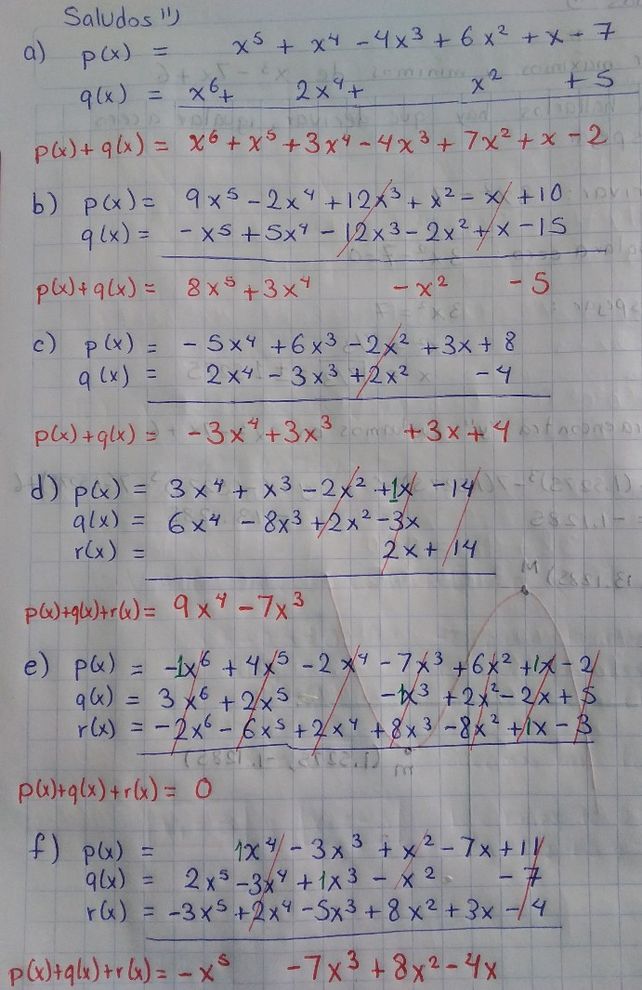 Saludos
a) p(x) = x⁵ + x⁴ - 4x³ + 6x² + x - 7
q(x) = x⁶ + 2x⁴ + x² + 5
p(x) + q(x) = x⁶ + x⁵ + 3x⁴ - 4x³ + 7x² + x - 2
b) p(x) = 9x⁵ - 2x⁴ + 12x³ + x² - x + 10
q(x) = - x⁵ + 5x⁴ - 12x³ - 2x² + x - 15
p(x) + q(x) = 8x⁵ + 3x⁴ - x² - 5
c) p(x) = - 5x⁴ + 6x³ - 2x² + 3x + 8
q(x) = 2x⁴ - 3x³ + 2x² - 4
p(x) + q(x) = - 3x⁴ + 3x³ + 3x + 4
d) p(x) = 3x⁴ + x³ - 2x² + 1x - 14
q(x) = 6x⁴ - 8x³ + 2x² - 3x
r(x) = 2x + 14
p(x)+q(x)+r(x) = 9x⁴ - 7x³
e) p(x) = -1x⁶ + 4x⁵ - 2x⁴ - 7x³ + 6x² + 1x - 2
q(x) = 3x⁶ + 2x⁵ - 1x³ + 2x² - 2x + 5
r(x) = - 2x⁶ - 6x⁵ + 2x⁴ + 8x³ - 8x² + 1x - 3
p(x)+q(x)+r(x) = 0
f) p(x) = 1x⁴ - 3x³ + x² - 7x + 11
q(x) = 2x⁵ - 3x⁴ + 1x³ - x² - 7
r(x) = -3x⁵ + 2x⁴ - 5x³ + 8x² + 3x - 4
p(x)+q(x)+r(x) = - x⁵ - 7x³ + 8x² - 4x